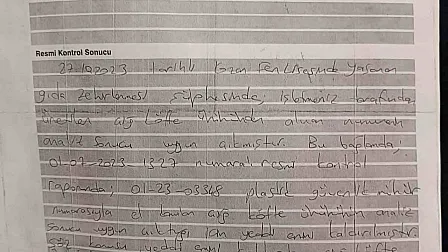 Resmi Kontrol Sonucu
27.10.2023 tarihli Ozan Fen Lisesinde yaşanan
gıda zehirlenmesi şüphesinde, işletmeniz tarafından
üretilen çiğ köfte ürününden alınan numunenin
analiz sonucu uygun çıkmıştır. Bu bağlamda;
01-07-2023-1327 numaralı resmi kontrol
raporunda; 01-23-03348 plastik güvenlik mühür
numarasıyla el konulan çiğ köfte ürününün analiz
sonucu uygun çıktığı için yedi emin kaldırılmıştır.